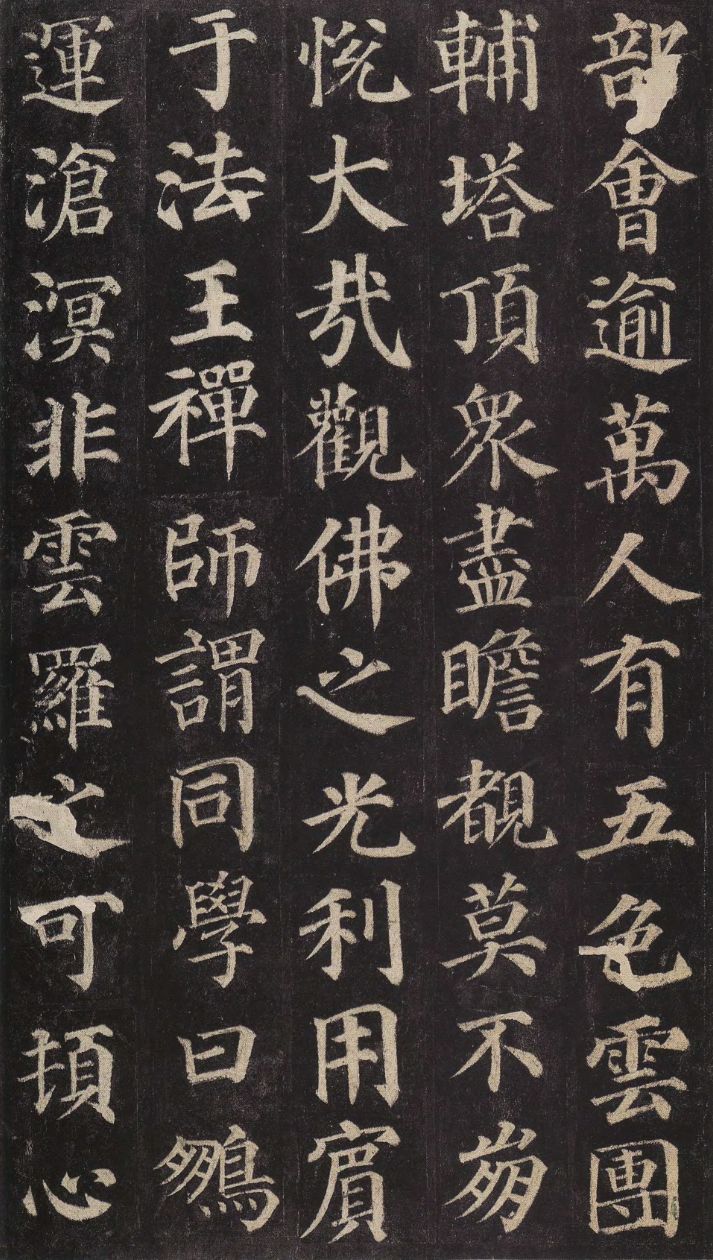 部會逾萬人有五色雲團
輔塔頂衆盡瞻覩莫不崩
悅大㢤觀佛之光利用賓
于法王禪師謂同學曰鵬
運滄溟非雲羅之可頓心